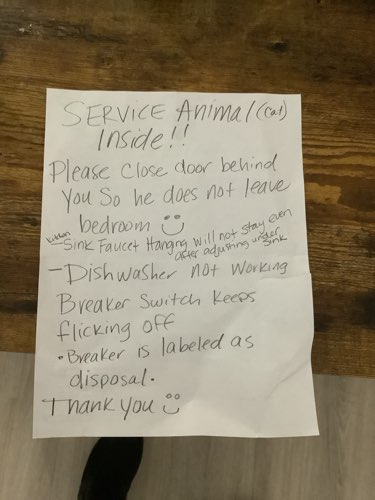 SERVICE Animal (cat)
Inside!!
Please close door behind
you so he does not leave
bedroom
kitchen
- Sink Faucet Hanging will not stay even
after adjusting under
sink
- Dishwasher not working
Breaker switch keeps
flicking off
• Breaker is labeled as
disposal.
Thank you